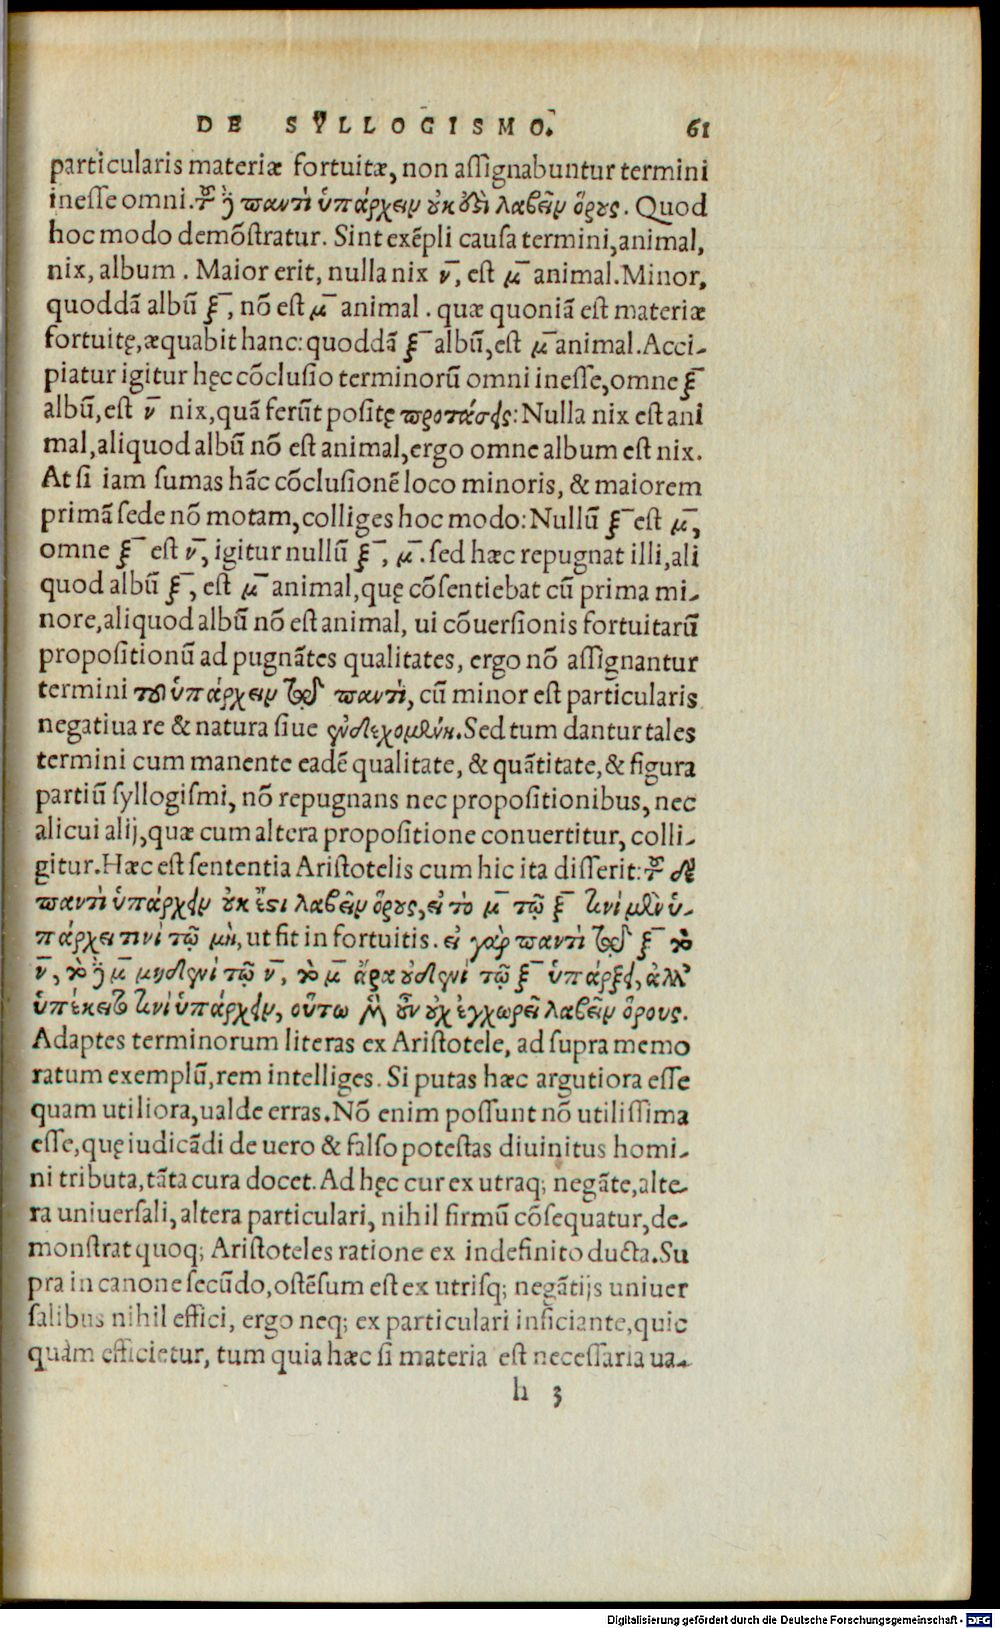 DE SYLLOGISMO. 61
particularis materiæ fortuitæ, non assignabuntur termini
inesse omni. τοῦ δὲ παντὶ ὑπάρχειν οὐκ ἔστι λαβεῖν ὅρους. Quod
hoc modo demõstratur. Sint exẽpli causa termini, animal,
nix, album. Maior erit, nulla nix ν̄, est μ̄ animal. Minor,
quoddã albũ ξ̄, nõ est μ̄ animal. quæ quoniã est materiæ
fortuitę, æquabit hanc: quoddã ξ̄ albũ, est μ̄ animal. Acci-
piatur igitur hęc cõclusio terminorũ omni inesse, omne ξ̄
albũ, est ν̄ nix, quã ferũt positę προτάσεις: Nulla nix est ani
mal, aliquod albũ nõ est animal, ergo omne album est nix.
At si iam sumas hãc cõclusionẽ loco minoris, & maiorem
primã sede nõ motam, colliges hoc modo: Nullũ ξ̄ est μ̄,
omne ξ̄ est ν̄, igitur nullũ ξ̄, μ̄. sed hæc repugnat illi, ali
quod albũ ξ̄, est μ̄ animal, quę cõsentiebat cũ prima mi-
nore, aliquod albũ nõ est animal, ui cõuersionis fortuitarũ
propositionũ ad pugnãtes qualitates, ergo nõ assignantur
termini τοῦ ὑπάρχειν τῷ παντὶ, cũ minor est particularis
negatiua re & natura siue ἐνδεχομένη. Sed tum dantur tales
termini cum manente eadẽ qualitate, & quãtitate, & figura
partiũ syllogismi, nõ repugnans nec propositionibus, nec
alicui alij, quæ cum altera propositione conuertitur, colli-
gitur. Hæc est sententia Aristotelis cum hic ita disserit: τοῦ δὲ
παντὶ ὑπάρχειν οὐκ ἔστι λαβεῖν ὅρους, εἰ τὸ μ̄ τῷ ξ̄ τινὶ μὲν ὑ-
πάρχει τινὶ τῷ μὴ, ut fit in fortuitis. εἰ γὰρ παντὶ τῷ ξ̄ τὸ
ν̄, τὸ δὲ μ̄ μηδενὶ τῷ ν̄, τὸ μ̄ ἄρα οὐδενὶ τῷ ξ̄ ὑπάρξει, ἀλλ'
ὑπέκειτο τινὶ ὑπάρχειν, οὕτω μὲν οὖν οὐχ ἐγχωρεῖ λαβεῖν ὅρους.
Adaptes terminorum literas ex Aristotele, ad supra memo
ratum exemplũ, rem intelliges. Si putas hæc argutiora esse
quam utiliora, ualde erras. Nõ enim possunt nõ utilissima
esse, quę iudicãdi de uero & falso potestas diuinitus homi-
ni tributa, tãta cura docet. Ad hęc cur ex utraq; negãte, alte-
ra uniuersali, altera particulari, nihil firmũ cõsequatur, de-
monstrat quoq; Aristoteles ratione ex indefinito ducta. Su
pra in canone secũdo, ostẽsum est ex utrisq; negãtijs uniuer
salibus nihil effici, ergo neq; ex particulari inficiante, quic
quàm efficietur, tum quia hæc si materia est necessaria ua-
h 3
Digitalisierung gefördert durch die Deutsche Forschungsgemeinschaft - DFG